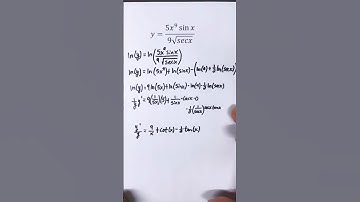 y = 5x⁹ sin x / 9√secx
ln(y) = ln(5x⁹ sinx / 9√secx)
ln(y) = ln(5x⁹) + ln(sinx) - (ln(9) + ½ ln(secx))
ln(y) = 9 ln(5x) + ln(sinx) - ln(9) - ½ ln(secx)
1/y y' = 9(1/5x)(5) + 1/sinx · cosx - 0
- ½ (1/secx) secx tanx
y'/y = 9/x + cot(x) - ½ tan(x)